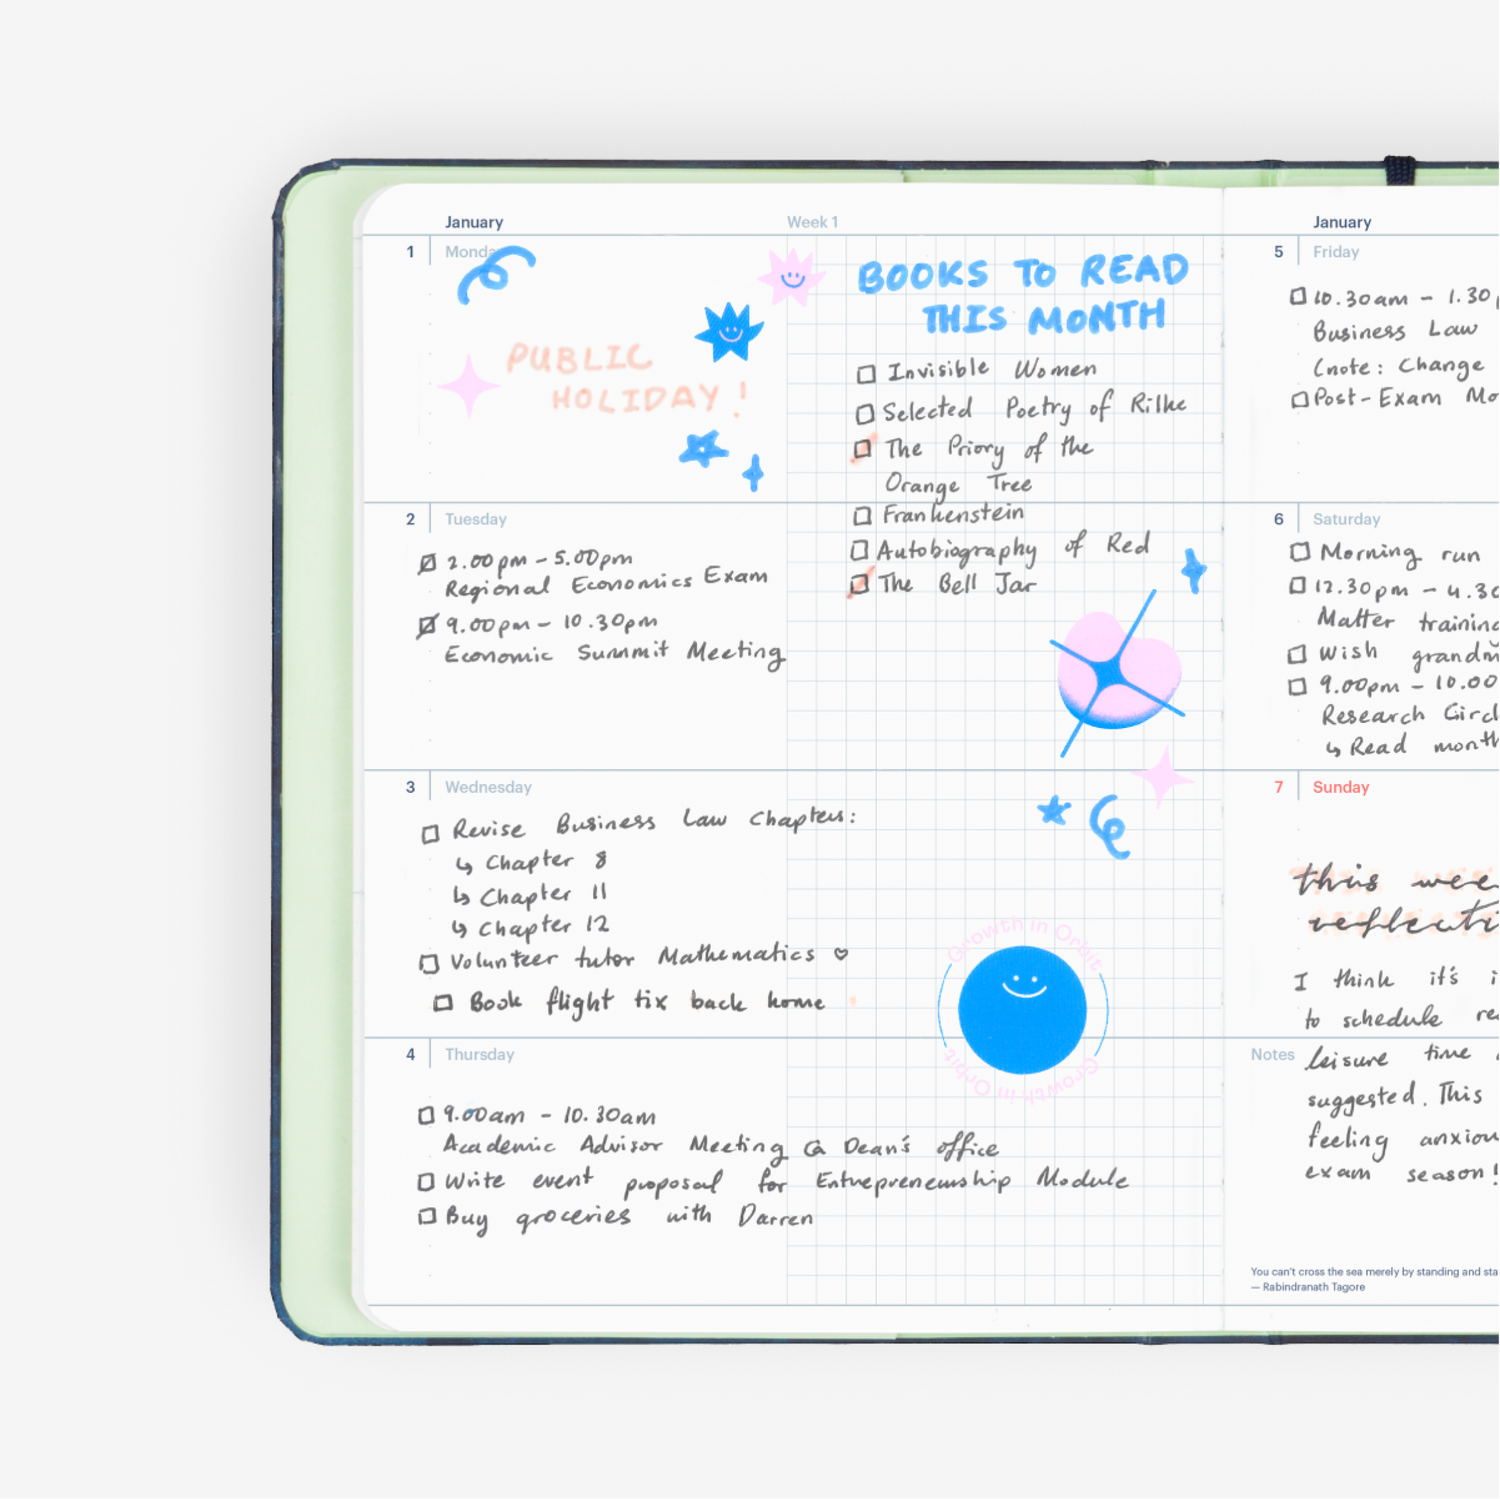 January
Week 1
1
Monday
PUBLIC
HOLIDAY!
BOOKS TO READ
THIS MONTH
Invisible Women
Selected Poetry of Rilke
The Priory of the
Orange Tree
Frankenstein
Autobiography of Red
The Bell Jar
2
Tuesday
2.00pm - 5.00pm
Regional Economics Exam
9.00pm - 10.30pm
Economic Summit Meeting
3
Wednesday
Revise Business Law Chapters:
↳ Chapter 8
↳ Chapter 11
↳ Chapter 12
Volunteer tutor Mathematics ♡
Book flight tix back home
Growth in Orbit
Growth in Orbit
4
Thursday
9.00am - 10.30am
Academic Advisor Meeting @ Dean's office
Write event proposal for Entrepreneurship Module
Buy groceries with Darren
January
5
Friday
10.30am - 1.30
Business Law
(note: Change
Post-Exam
6
Saturday
Morning run
12.30pm -
Matter
Wish
9.00pm - 10.00
Research
↳ Read
7
Sunday
this
I think it's
to schedule
Notes
leisure time
suggested. This
feeling
exam season!
You can't cross the sea merely by standing and
— Rabindranath Tagore